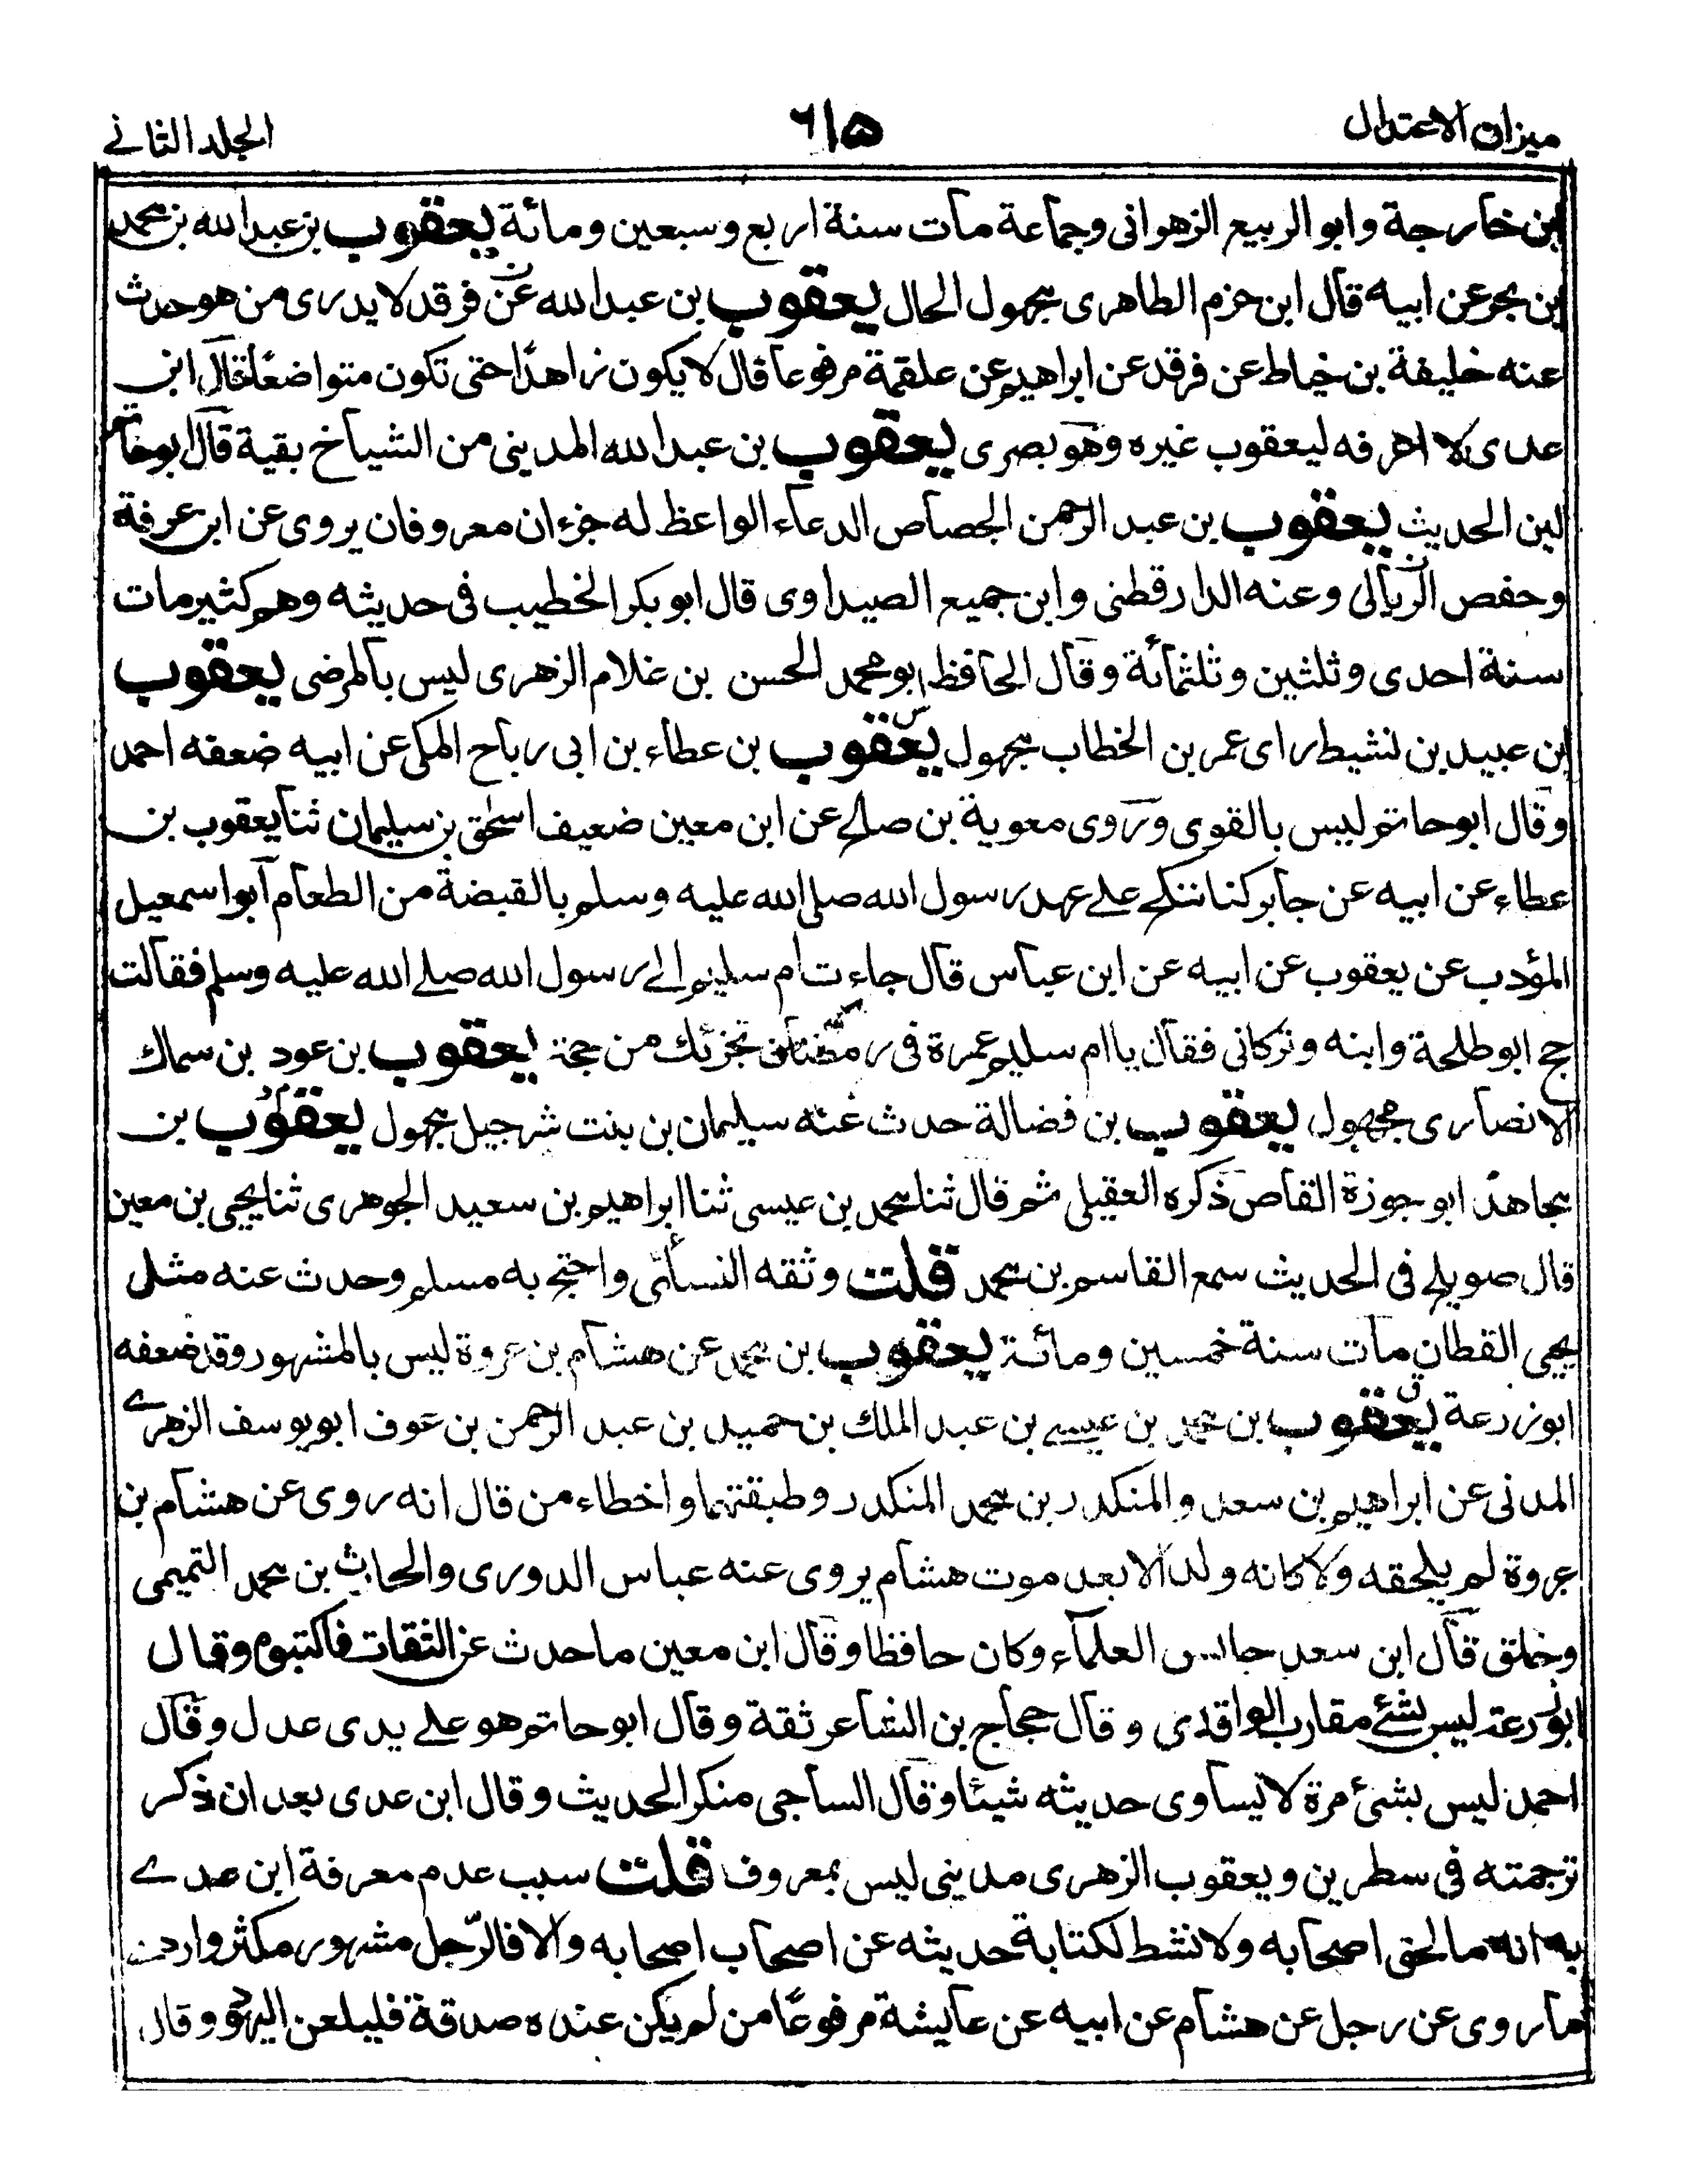 ميزان الاعتدال
٦١٥
الجلد الثاني
ابن خارجة وابو الربيع الزهراني وجماعة مات سنة اربع وسبعين ومائة يعقوب بن عبد الله بن محمد
ابن بحر عن ابيه قال ابن حزم الطاهرى مجهول الحال يعقوب بن عبد الله عن فرقد لا يدرى من هو حدث
عنه خليفة بن خياط عن فرقد عن ابراهيم عن علقمة مرفوعا قال لا يكون زاهدا حتى تكون متواضعا قال ابن
عدى لا اعرفه ليعقوب غيره وهو بصرى يعقوب بن عبد الله المديني من اشياخ بقية قال ابو حاتم
لين الحديث يعقوب بن عبد الرحمن الجصاص الدعاء الواعظ له جزءان معروفان يروى عن ابن عرفة
وحفص الربالى وعنه الدارقطنى وابن جميع الصيداوى قال ابو بكر الخطيب فى حديثه وهم كثير مات
سنة احدى وثلثين وثلثمائة وقال الحافظ ابو محمد الحسن بن غلام الزهرى ليس بالمرضى يعقوب
ابن عبيد بن نشيط راى عمر بن الخطاب مجهول يعقوب بن عطاء بن ابى رباح المكى عن ابيه ضعفه احمد
وقال ابو حاتم ليس بالقوى وروى معوية بن صالح عن ابن معين ضعيف اسحق بن سليمان ثنا يعقوب بن
عطاء عن ابيه عن جابر كنا ننكح على عهد رسول الله صلى الله عليه وسلم بالقبضة من الطعام ابو اسمعيل
المؤدب عن يعقوب عن ابيه عن ابن عباس قال جاءت ام سليم الى رسول الله صلى الله عليه وسلم فقالت
حج ابو طلحة وابنه وتركانى فقال يا ام سليم عمرة فى رمضان تجزئك من حجة يعقوب بن عود بن سماك
الانصارى مجهول يعقوب بن فضالة حدث عنه سليمان بن بنت شرحبيل مجهول يعقوب بن
مجاهد ابو حزرة القاص ذكره العقيلى ثم قال ثنا محمد بن عيسى ثنا ابراهيم بن سعيد الجوهرى ثنا يحيى بن معين
قال صويلح فى الحديث سمع القاسم بن محمد قلت وثقه النسائى واحتج به مسلم وحدث عنه مثل
يحيى القطان مات سنة خمسين ومائة يعقوب بن محمد عن هشام بن عروة ليس بالمشهور وقد ضعفه
ابو زرعة يعقوب بن محمد بن عيسى بن عبد الملك بن حميد بن عبد الرحمن بن عوف ابو يوسف الزهرى
المدنى عن ابراهيم بن سعد والمنكدر بن محمد المنكدر وطبقتهما واخطاء من قال انه روى عن هشام بن
عروة لم يلحقه ولا كانه ولد الا بعد موت هشام يروى عنه عباس الدورى والحارث بن محمد التميمى
وخلق قال ابن سعد جالس العلماء وكان حافظا وقال ابن معين ما حدث عن الثقات فاكتبوه وقال
ابو زرعة ليس بشئ مقارب الواقدى وقال حجاج بن الشاعر ثقة وقال ابو حاتم هو على يدى عدل وقال
احمد ليس بشئ مرة لا يساوى حديثه شيئا وقال الساجى منكر الحديث وقال ابن عدى بعد ان ذكر
ترجمته فى سطرين ويعقوب الزهرى مدينى ليس بمعروف قلت سبب عدم معرفة ابن عدى
به انه ما لحق اصحابه ولا نشط لكتابة حديثه عن اصحاب اصحابه والا فالرجل مشهور مكثر واردى
ما روى عن رجل عن هشام عن ابيه عن عايشة مرفوعا من لم يكن عنده صدقة فليلعن اليهود وقال